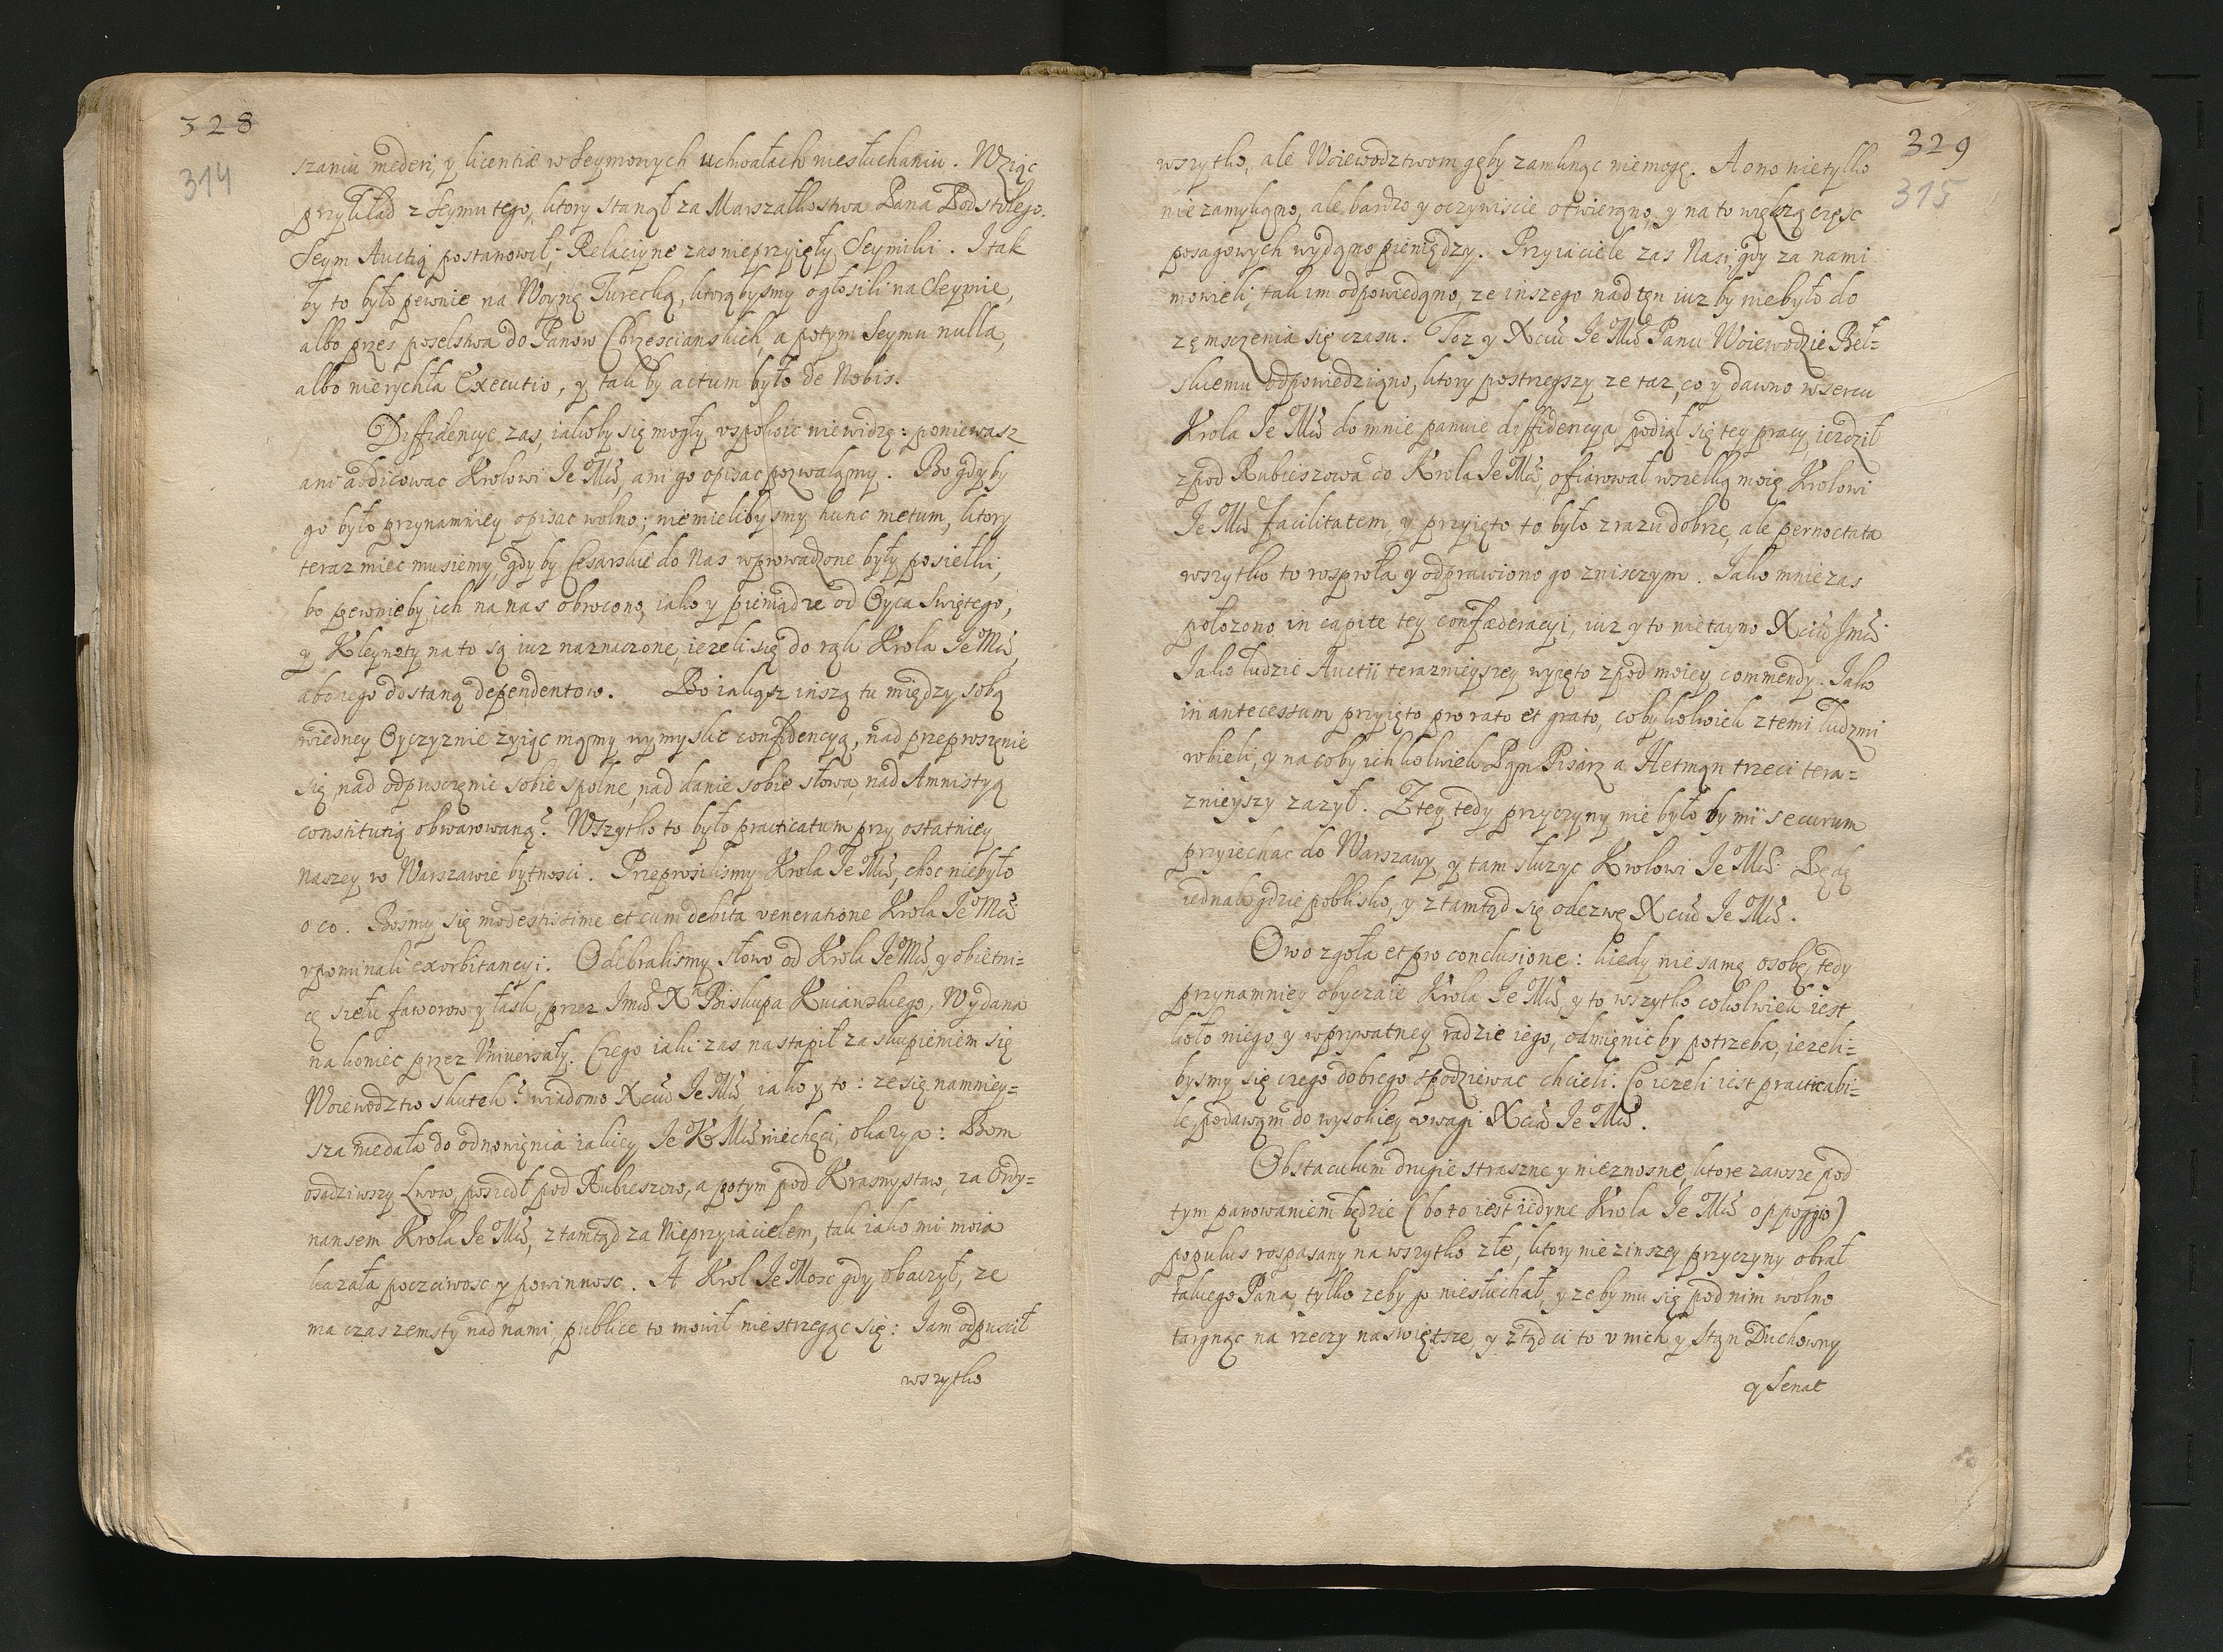 328
314
szaniu mederi, y licentiæ w Seymowych uchwałach niesłuchaniu. Wziąc
przykład z Seymu tego, ktory stanął za Marszałkostwa Pana Podstolego.
Seym Auctią postanowił; Relacyine zas nieprzyięły Seymiki. I tak
by to było pewnie na Woynę Turecką, ktorąbysmy ogłosili na Seymie,
albo przes poselstwa do Panow Chrzescianskich, a potym Seymu nulla,
albo nierychła Executio, y tak by actum było de Nobis.
Diffidencye zas, iakoby się mogły uspokoic niewidzę: poniewasz
ani abdicowac Krolowi Je Mći, ani go opisac pozwalamy. Bo gdy by
go było przynamniey opisac wolno; niemielibysmy hunc metum, ktory
teraz miec musiemy, gdy by Cesarskie do Nas wprowadzone były posiełki,
bo pewnieby ich na nas obrocono, iako y pieniądze od Oyca Swiętego;
y Kleynoty na to są iuz naznaczone, iezeli się do rąk Krola Je Mći,
abo iego dostaną dependentow. Bo iakąsz inszą tu między sobą
wiedney Oyczyznie zyiąc mamy wymyslic confidencyą, nad przeproszęnie
się, nad odpusczęnie sobie spolne, nad danie sobie słowa, nad Amnistyą
constitutią obwarowaną? Wszytko to było practicatum przy ostatniey
naszey w Warszawie bytnosci. Przeprosilismy Krola Je Mći, choc niebyło
o co. Bosmy się modestissime et cum debita veneratione Krola Je Mći
upominali exorbitancyi. Odebralismy słowo od Krola Je Mći, y obietni=
cę siełu faworow y łask, przez Jmći X Biskupa Kuiawskiego, Wydana
na koniec przez Uniwersały. Czego iaki zas nastąpił za skupieniem się
Woiewodztw skutek? wiadomo Xciu Je Mći, iako y to: ze się nammiey=
sza niedała do odnowięnia iakiey Je K Mći niechęci, okazya: Bom
osadziwszy Lwow, poszedł pod Rubieszow, a potym pod Krasnystaw, za Ordy=
nansem Krola Je Mći, z tamtąd za Nieprzyiacielem, tak iako mi moia
kazała poczciwosc y powinnosc. A Krol Je Mosc gdy obaczył, ze
ma czas zemsty nad nami, publice to mowił niestrzegąc się: Jam odpuscił
wszytko
329
315
wszytko, ale Woiewodztwom gęby zamknąc niemogę. A ono nietylko
niezamykąno, ale bardzo y oczywiscie otwierąno, y na to większą częsc
posagowych wydąno pieniędzy. Przyiaciele zas Nasi, gdy za nami
mowieli, tak im odpowiedąno, ze inszego nad tęn iuz by niebyło do
zęmsczenia się czasu. Toz y Xciu Je Mći Panu Woiewodzie Beł=
skiemu odpowiedziąno, ktory postrzegszy ze taz, co y dawno w sercu
Krola Je Mći do mnie panuie diffidencya podiął się tey pracy iezdził
zpod Rubieszowa do Krola Je Mći, ofiarował wszelką moię Krolowi
Je Mći facilitatem, y przyięto to było z razu dobrze, ale pernoctata
wszytko to rosprοła y odprawiono go znisczym. Jako mnie zas
połozono in capite tey confæderacyi, iuz y to nietayno Xciu Jmći.
Jako ludzie Auctii terazniejszey wyięto zpod moiey commendy. Jako
in antecessum przyięto pro rato et grato, cobykolwiek z temi ludzmi
robieli, y na coby ich kolwiek Pan Pisarz a Hetman trzeci tera=
znieyszy zazył. Z tey tedy przyczyny nie było by mi securum
przyiechac do Warszawy, y tam słuzyc Krolowi Je Mći. Będę
iednak gdzie poblisko, y z tamtąd się odezwę Xciu Je Mći.
Owo zgoła et pro conclusione: kiedy nie samę osobę, tedy
przynamniey obyczaie Krola Je Mći y to wszytko cokolwiek iest
koło niego, y w prywatney radzie iego, odmięnic by potrzeba, iezeli=
bysmy się czego dobrego spodziewac chcieli. Co iezeli iest practicabi=
le, podawam do wysokiey uwagi Xcia Je Mći.
Obstaculum drugie straszne y nieznosne, ktore zawsze pod
tym panowaniem będzie (bo to iest iedyne Krola Je Mći oppoggio)
populus rospasany na wszytko złe, ktory nie zinszey przyczyny obrał
takiego Pana, tylko zeby go niesłuchał, y ze by mu się pod nim wolno
targnąc na rzeczy naswiętsze, y ztąd ci to u nich y Stan Duchowny
y Senat